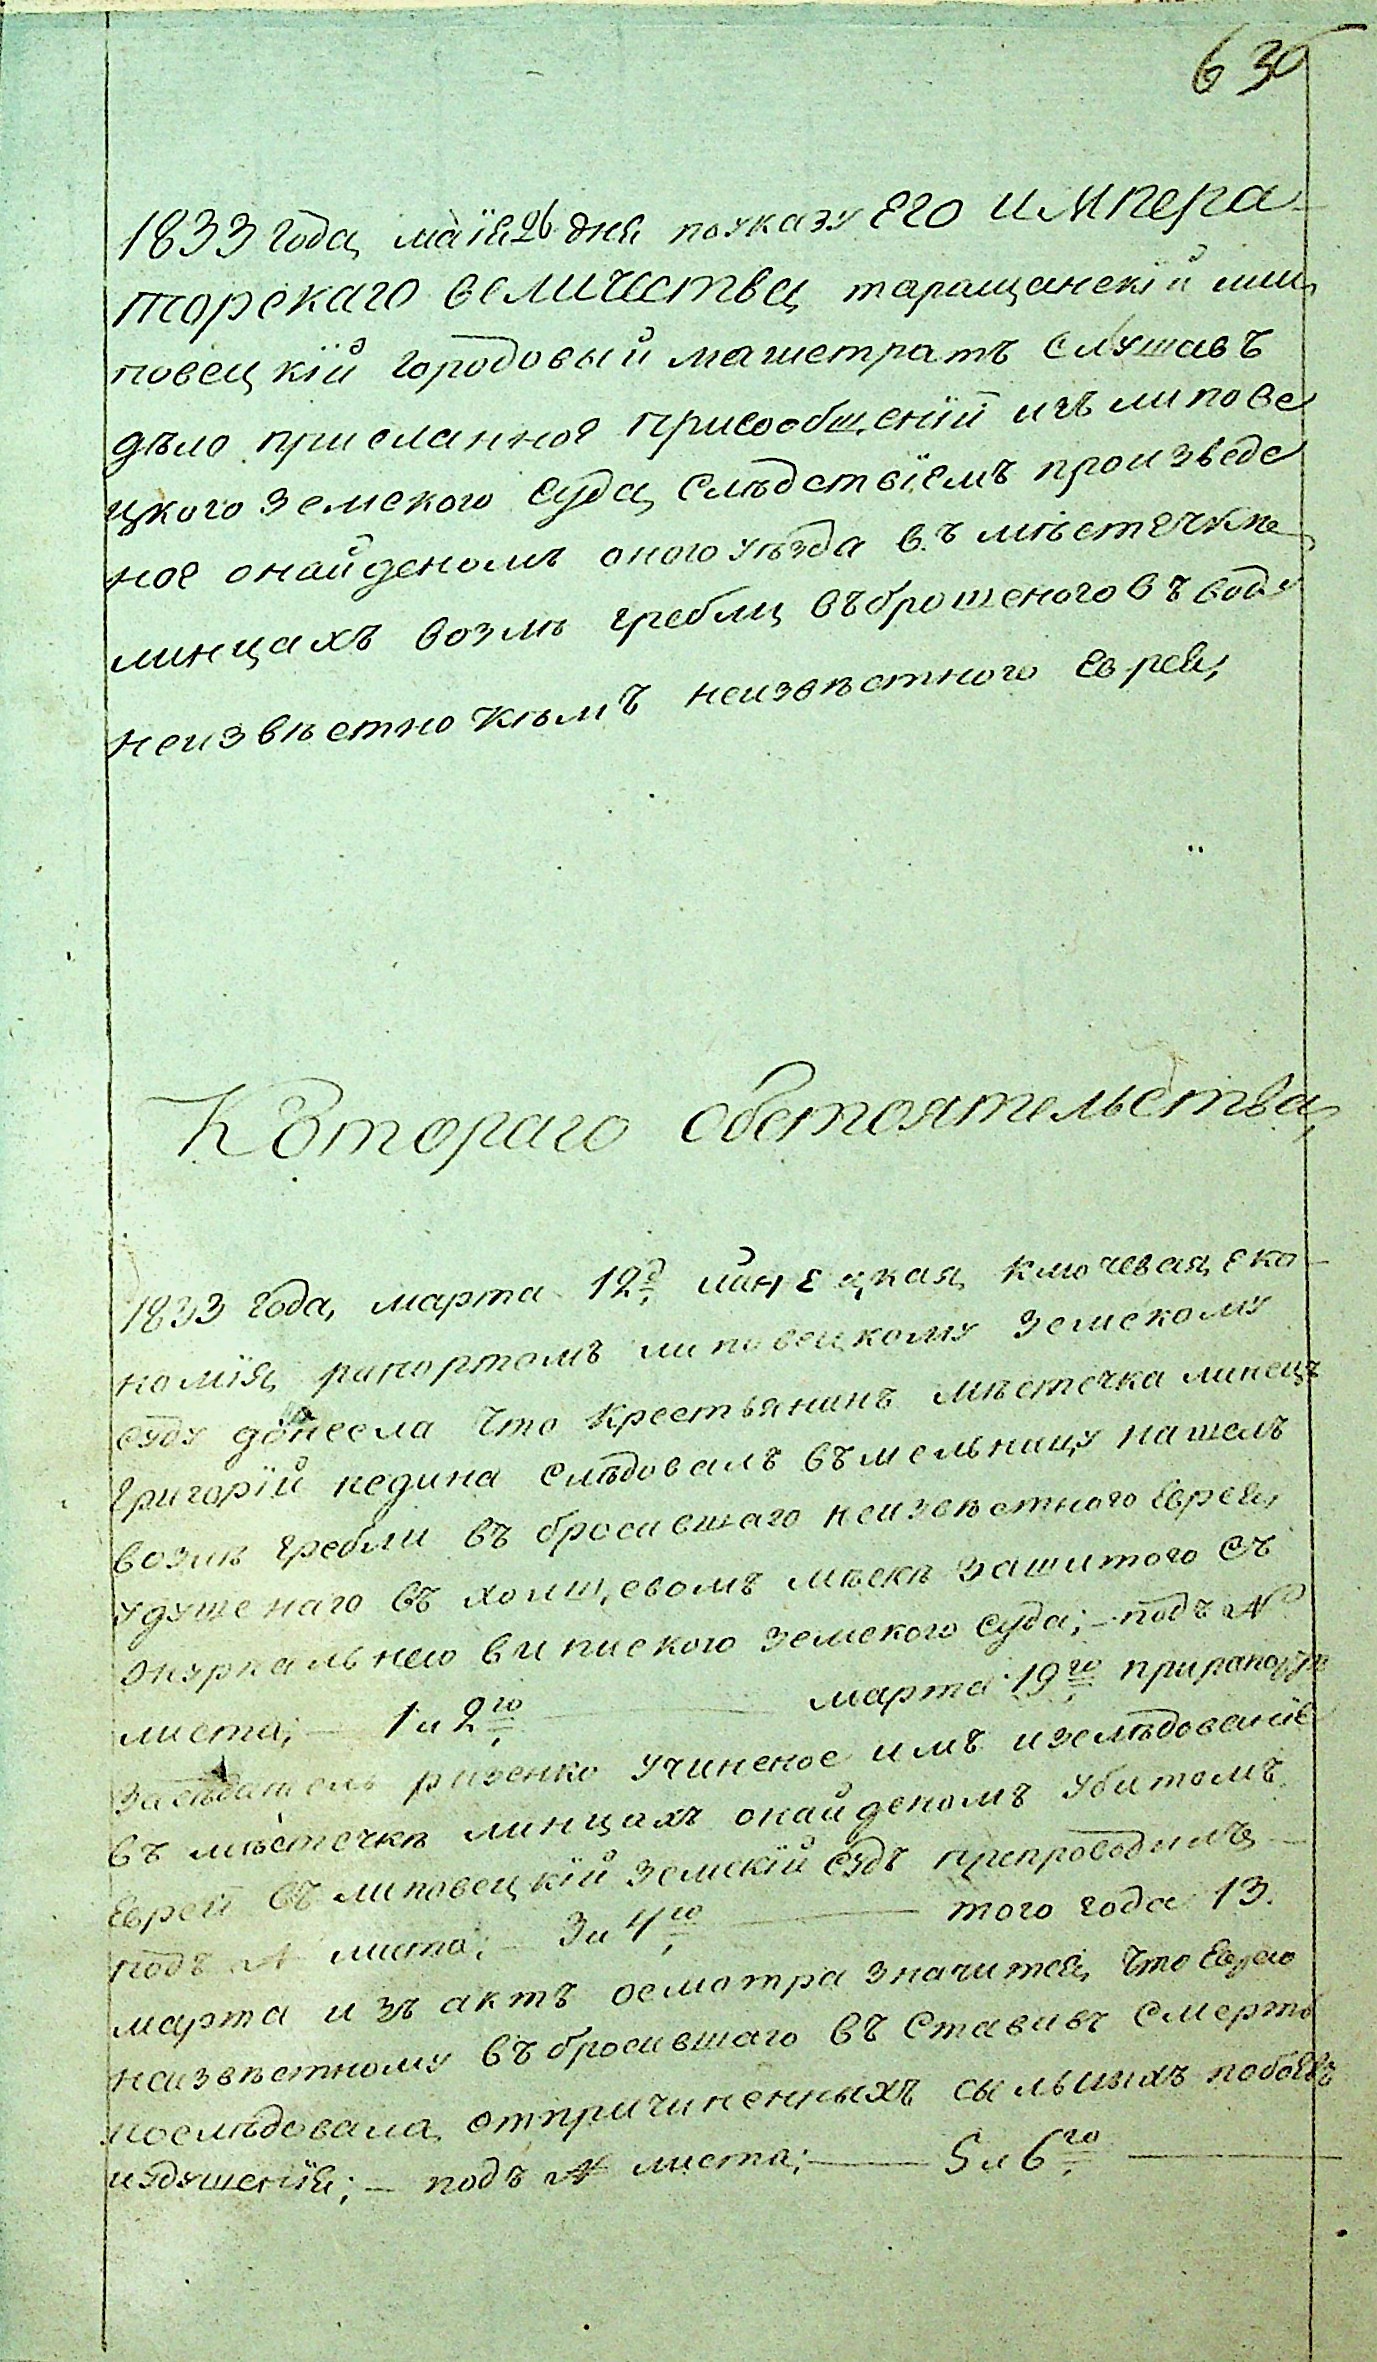 630
1833 года маія 26 дня поуказу Его импера
торскаго величества таращанскій или
повецкій городовый магистратъ слушавъ
дѣло присланное присообщеніи изъ липове
цкого земского суда слѣдствіемъ произведе
ное онайденомъ оного уѣзда въ мѣстечкѣ
линцахъ возлѣ гребли въброшеного въ воду
неизвѣстно кѣмъ неизвѣстного еврея,
Котораго обстоятельства
1833 года, марта 12д линецкая ключевая еко
номія рапортомъ липовецкому земскому
суду донесла что крестьянинъ мѣстечка линецъ
григорій недина слѣдовалъ въ мельницу нашелъ
возлѣ гребли въ бросившаго неизвѣстного еврея,
удушенаго въ холщевомъ мѣскѣ зашитого съ
випиского земского суда; – подъ №
листа; – 1 и 2го — марта 19го прирапортѣ
засѣдатель учиненое имъ изслѣдованіе
въ мѣстечкѣ линцахъ онайденомъ убитомъ
еврей въ липовецкій земскій судъ препроводилъ –
подъ № листа; – 3 и 4го — того года 13.
марта изъ актъ осмотра значится что еврею
неизвѣстному въбросившаго въ ставивъ смерть
послѣдовала отпричиненныхъ сыльныхъ побоевъ
иудушенія; – подъ № листа; — 5 и 6го —